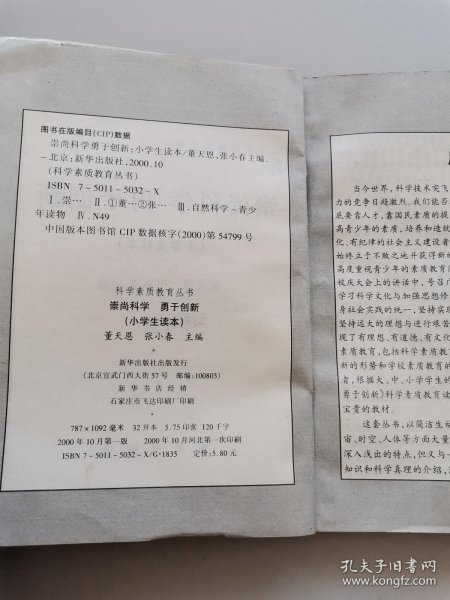 图书在版编目(CIP)数据
崇尚科学勇于创新:小学生读本/董天恩,张小春主编.
-北京:新华出版社,2000.10
(科学素质教育丛书)
ISBN 7-5011-5032-X
Ⅰ.崇… Ⅱ.①董…②张… Ⅲ.自然科学-青少
年读物 Ⅳ.N49
中国版本图书馆CIP数据核字(2000)第54799号
科学素质教育丛书
崇尚科学 勇于创新
(小学生读本)
董天恩 张小春 主编
*
新华出版社出版发行
(北京宣武门西大街57号 邮编:100803)
新华书店经销
石家庄市飞达印刷厂印刷
*
787×1092毫米 32开本 5.75印张 120千字
2000年10月第一版 2000年10月河北第一次印刷
ISBN 7-5011-5032-X/G·1835 定价:5.80元
当今世界,科学技术突飞
力的竞争日趋激烈。我们能否
底要靠人才,靠国民素质的提
高青少年的素质,培养和造就
化、有纪律的社会主义建设者
始终立于不败之地并获得新的
高度重视青少年的素质教育
校庆大会上的讲话中,号召广
学习科学文化与加强思想修
身社会实践的统一,坚持实现
坚持远大的理想与进行艰苦
现了有理想、有道德、有文化
素质教育,包括科学素质教
新的形势和学校素质教育的
者,根据大、中、小学学生的
勇于创新》科学素质教育读
宝贵的教材。
这套丛书,以简洁生动
宙、时空、人体等方面大量
深入浅出的特点,但又与一
知识和科学真理的介绍,
孔夫子旧书网
www.kongfz.com